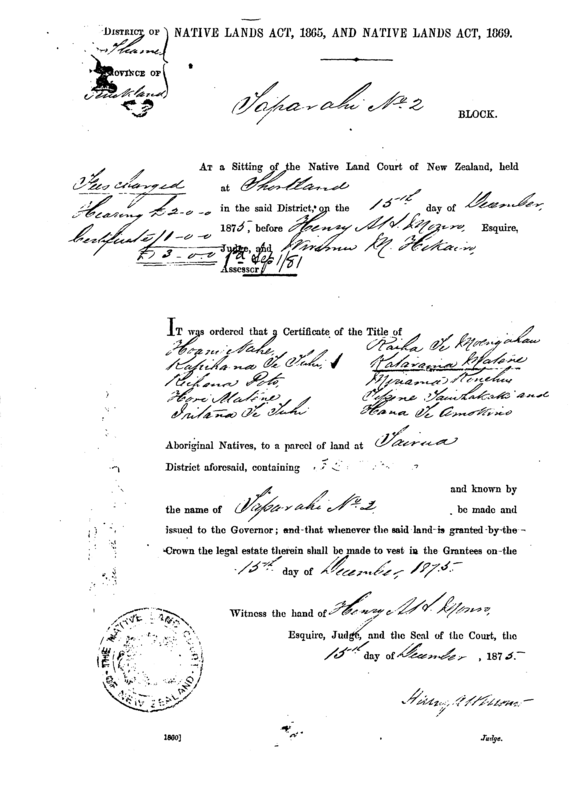 DISTRICT OF
Thames
PROVINCE OF
Auckland
NATIVE LANDS ACT, 1865, AND NATIVE LANDS ACT, 1869.
Taparahi No. 2
BLOCK.
AT a Sitting of the Native Land Court of New Zealand, held
at Shortland
Fees charged
Hearing £2-0-0
Certificate 1-0-0
£3-0-0
in the said District, on the 15th day of December,
1875, before Henry Monro, Esquire,
Judge, and Hikairo,
Assessor
IT was ordered that a Certificate of the Title of
Hoani Nahe
Te Tuhi
Poto
Hori Matene
Te Tuhi
Raika Te Moengahau
Matene
and
Hana Te
Aboriginal Natives, to a parcel of land at Tairua
District aforesaid, containing
and known by
the name of Taparahi No. 2 be made and
issued to the Governor; and that whenever the said land is granted by the
Crown the legal estate therein shall be made to vest in the Grantees on the
15th day of December, 1875.
Witness the hand of Henry Monro,
Esquire, Judge, and the Seal of the Court, the
15th day of December, 1875.
THE NATIVE LAND COURT OF NEW ZEALAND
Henry A H Monro
1860]
Judge.